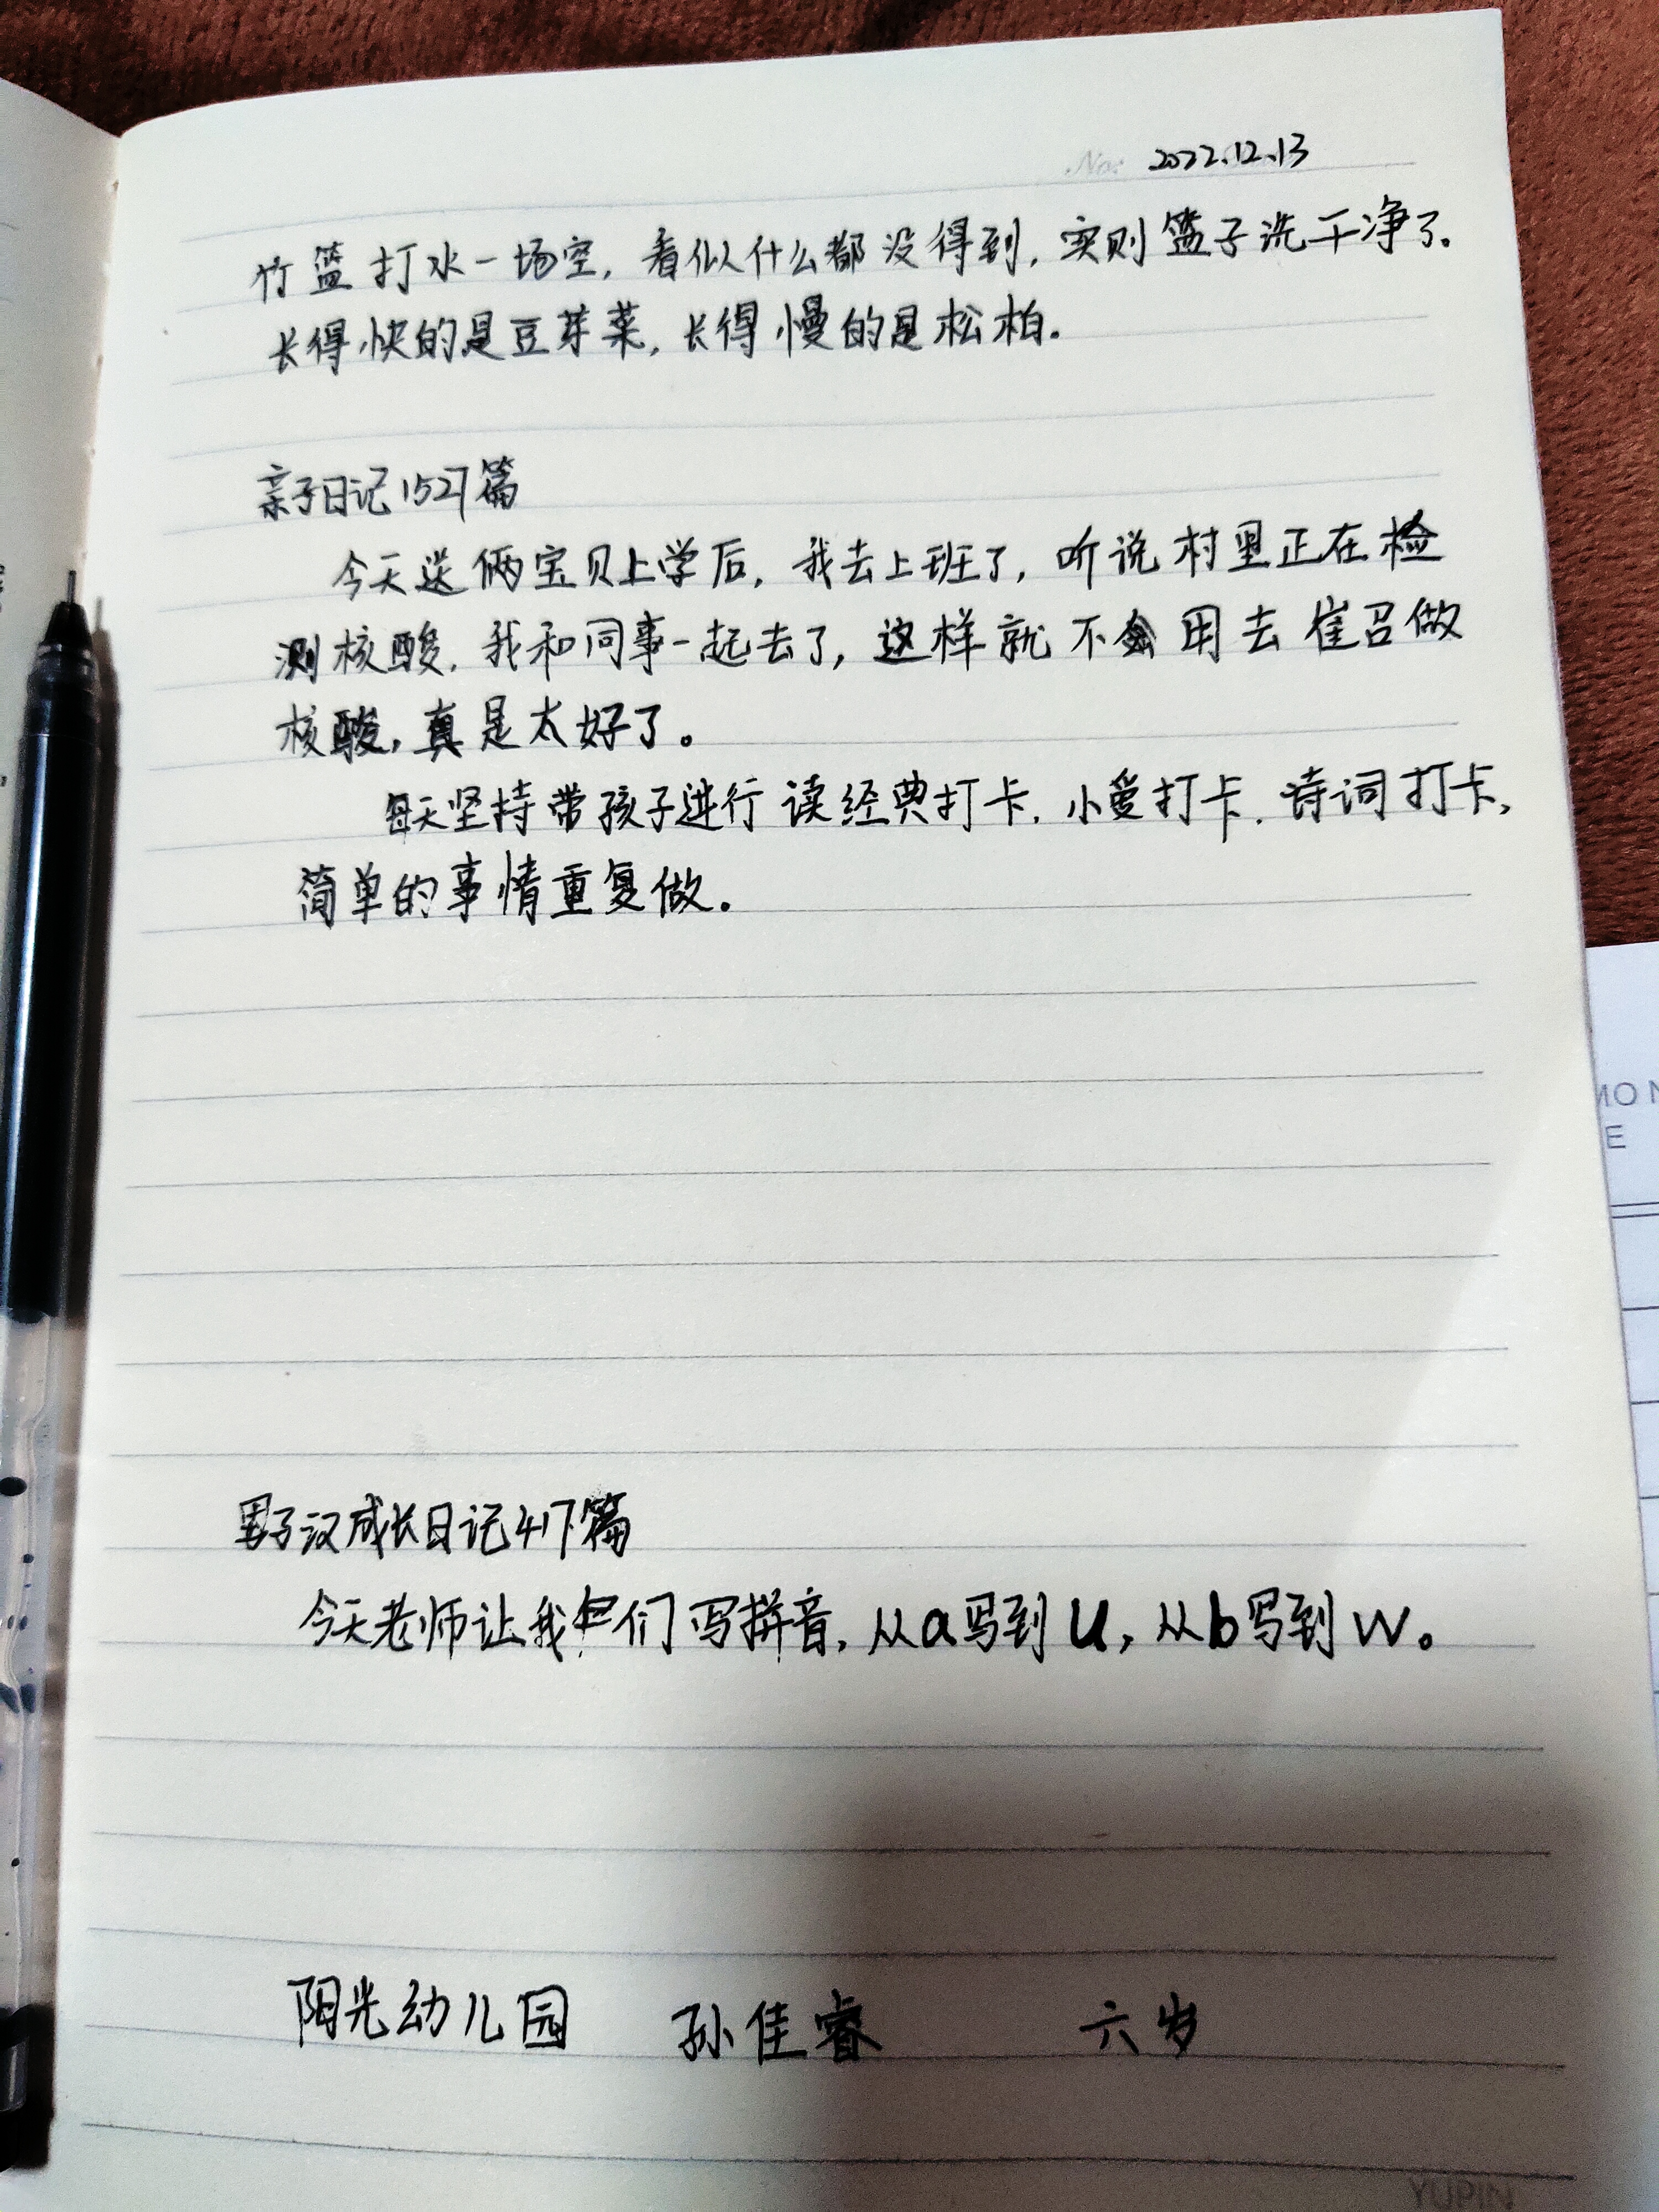 No: 2022.12.13
竹篮打水一场空，看似什么都没得到，实则篮子洗干净了。
长得快的是豆芽菜，长得慢的是松柏。
亲子日记1527篇
今天送俩宝贝上学后，我去上班了，听说村里正在检
测核酸，我和同事一起去了，这样就不用去崔召做
核酸，真是太好了。
每天坚持带孩子进行读经典打卡、小爱打卡、诗词打卡，
简单的事情重复做。
男子汉成长日记417篇
今天老师让我们写拼音，从a写到u，从b写到w。
阳光幼儿园 孙佳睿 六岁
YUPIN
E